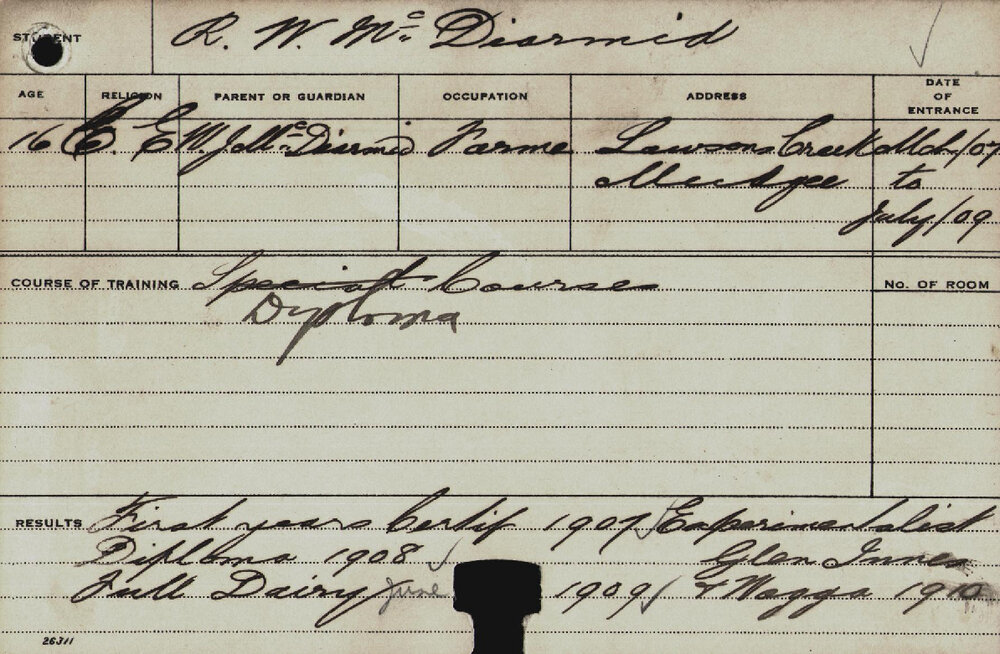 STUDENT R. W. Mc Diarmid
AGE RELIGION PARENT OR GUARDIAN OCCUPATION ADDRESS DATE OF ENTRANCE
16 C. E W. J. Mc Diarmid Farme Lawsons Creek Mch/07
Mudgee to
July/09
COURSE OF TRAINING Special Course No. OF ROOM
Diploma
RESULTS First years Certif 1907 Experimentalist
Diploma 1908 Glen Innes
Full Dairy June 1909 & Wagga 1910
26311